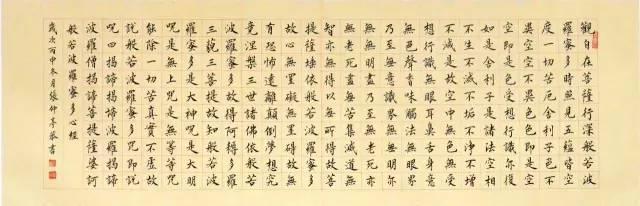 觀自在菩薩行深般若波
羅蜜多時照見五蘊皆空
度一切苦厄舍利子色不
異空空不異色色即是空
空即是色受想行識亦復
如是舍利子是諸法空相
不生不滅不垢不淨不增
不減是故空中無色無受
想行識無眼耳鼻舌身意
無色聲香味觸法無眼界
乃至無意識界無無明亦
無無明盡乃至無老死亦
無老死盡無苦集滅道無
智亦無得以無所得故菩
提薩埵依般若波羅蜜多
故心無罣礙無罣礙故無
有恐怖遠離顛倒夢想究
竟涅槃三世諸佛依般若
波羅蜜多故得阿耨多羅
三藐三菩提故知般若波
羅蜜多是大神呪是大明
呪是無上呪是無等等呪
能除一切苦真實不虛故
說般若波羅蜜多呪即說
呪曰揭諦揭諦波羅揭諦
波羅僧揭諦菩提薩婆訶
般若波羅蜜多心經
歲次丙申冬月張仲亭敬書